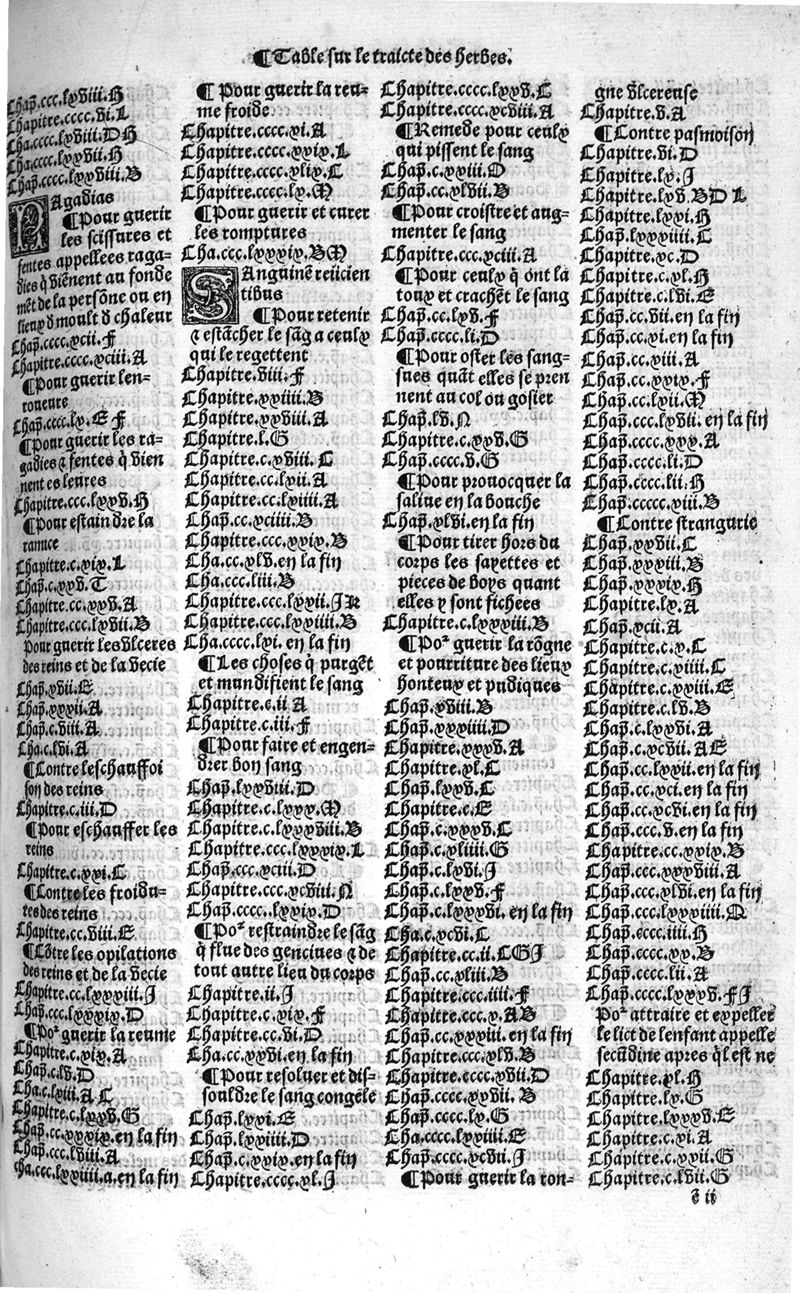 ¶Table sur le traicte des herbes.
Chap̃.ccc.lxviii.H
Chapitre.cccc.vi.L
Cha.cccc.lxviii.DH
Cha.cccc.lxxvii.H
Chap̃.cccc.lxxviii.B
RAgadias
¶Pour guerir
les scissures et
fentes appellees raga-
dies q̃ viẽnent au fonde
mẽt de la persõne ou en
lieux d moult d chaleur
Chap̃.cccc.xcii.F
Chapitre.cccc.xciii.A
¶Pour guerir len-
roueure
Chap̃.cccc.lx.E F
¶Pour guerir les ra-
gadies ⁊ fentes q̃ vien
nent es leures
Chapitre.ccc.lxxv.H
¶Pour estaindre la
rancce
Chapitre.c.xix.L
Chap̃.c.xxv.T
Chapitre.cc.xxv.A
Chapitre.ccc.lxvii.B
Pour guerir les vlceres
des reins et de la vecie
Chap̃.xvii.E
Chap̃.xxxii.A
Chap̃.c.viii.A
Cha.c.lvi.A
¶Contre leschauffoi
son des reins
Chapitre.c.iii.D
¶Pour eschauffer les
reins
Chapitre.c.xxi.C
¶Contre les froidu-
res des reins
Chapitre.cc.viii.E
¶Cõtre les opilations
des reins et de la vecie
Chapitre.cc.lxxxiii.J
Chap̃.ccc.lxxxix.D
¶Poᷣ guerir la reume
Chapitre.c.xix.A
Chap̃.c.lv.D
Cha.c.lxiii.A C
Chapitre.c.lxxv.G
Chap̃.cc.xxxix.en la fin
Chap̃.ccc.lviii.A
cha.ccc.lxxiiii.a.en la fin
¶Pour guerir la reu-
me froide
Chapitre.cccc.xi.A
Chapitre.cccc.xxix.L
Chapitre.cccc.xlix.C
Chapitre.cccc.lx.M
¶Pour guerir et curer
les romptures
Cha.ccc.lxxxix.BM
SAnguinẽ reiicien
tibus
¶Pour retenir
⁊ estãcher le sãg a ceulx
qui le regettent
Chapitre.viii.F
Chapitre.xxiiii.B
Chapitre.xxviii.A
Chapitre.l.G
Chapitre.c.xviii.C
Chapitre.cc.lxii.A
Chapitre.cc.lxiiii.A
Chap̃.cc.xciiii.B
Chapitre.ccc.xxix.B
Cha.cc.xlv.en la fin
Cha.ccc.liii.B
Chapitre.ccc.lxxii.JK
Chapitre.ccc.lxxiiii.B
Cha.cccc.lxi.en la fin
¶Les choses q̃ purgẽt
et mundifient le sang
Chapitre.c.ii A
Chapitre.c.iii.F
¶Pour faire et engen-
drer bon sang
Chap̃.lxxviii.D
Chapitre.c.lxxx.M
Chapitre.c.lxxxviii.B
Chapitre.ccc.lxxxix.L
Chap̃.ccc.xciii.D
Chapitre.ccc.xcviii.N
Chap̃.cccc..lxxix.D
¶Poᷣ restraindre le sãg
q̃ flue des gencives ⁊ de
tout autre lieu du corps
Chapitre.ii.J
Chapitre.c.xix.F
Chapitre.cc.vi.D
Cha.cc.xxvi.en la fin
¶Pour resoluer et dis-
souldre le sang congele
Chap̃.lxxi.E
Chap̃.lxxiiii.D
Chap̃.c.xxix.en la fin
Chapitre.cccc.xl.J
Chapitre.cccc.lxxv.C
Chapitre.cccc.xcviii.A
¶Remede pour ceulx
qui pissent le sang
Chap̃.c.xxiii.O
Chap̃.cc.xlvii.B
¶Pour croistre et aug-
menter le sang
Chapitre.ccc.xciii.A
¶Pour ceulx q̃ ont la
toux et crachẽt le sang
Chap̃.cc.lxv.F
Chap̃.cccc.li.D
¶Pour oster les sang-
sues quãt elles se pren
nent au col ou gosier
Chap̃.lv.N
Chapitre.c.xxv.G
Chap̃.cccc.v.G
¶Pour prouocquer la
saliue en la bouche
Chap̃.xlvi.en la fin
¶Pour tirer hors du
corps les sayettes et
pieces de boys quant
elles y sont fichees
Chapitre.c.lxxxiii.B
¶Poᷣ guerir la rõgne
et pourriture des lieux
honteux et pudiques
Chap̃.xviii.B
Chap̃.xxxiiii.D
Chapitre.xxxv.A
Chapitre.xl.C
Chap̃.lxxv.C
Chapitre.c.E
Chap̃.c.xxxv.C
Chap̃.c.xliiii.G
Chap̃.c.lxvi.J
Chap̃.c.lxxv.F
Chap̃.c.lxxxvi.en la fin
Cha.c.xcvi.C
Chapitre.cc.ii.CGJ
Chap̃.cc.xliii.B
Chapitre.ccc.iiii.F
Chap̃.ccc.x.AB
Chap̃.cc.xxxiii.en la fin
Chapitre.ccc.xlv.B
Chapitre.cccc.xvii.D
Chap̃.cccc.xxvii.B
Chap̃.cccc.lx.G
Cha.cccc.lxxiiii.E
Chap̃.cccc.xcvii.J
¶Pour guerir la ron-
gne vlcereuse
Chapitre.v.A
¶Contre pasmoison
Chapitre.vi.D
Chapitre.lx.J
Chapitre.lxv.BD L
Chapitre.lxxi.H
Chap̃.lxxxiiii.C
Chapitre.xc.D
Chapitre.c.xl.H
Chapitre.c.lvi.E
Chap̃.cc.vii.en la fin
Chap̃.cc.xi.en la fin
Chap̃.cc.xiii.A
Chap̃.cc.xxix.F
Chap̃.cc.lxii.M
Chap̃.ccc.lxvii.en la fin
Chap̃.cccc.xxx.A
Chap̃.cccc.li.D
Chap̃.cccc.lii.H
Chap̃.ccccc.xiii.B
¶Contre strangurie
Chap̃.xxvii.C
Chap̃.xxxiii.B
Chap̃.xxxix.H
Chapitre.lx.A
Chap̃.xcii.A
Chapitre.c.x.C
Chapitre.c.xiiii.C
Chapitre.c.xxii.E
Chapitre.c.lv.B
Chap̃.c.lxxvi.A
Chap̃.c.xcvii.AE
Chap̃.cc.lxxii.en la fin
Chap̃.cc.xci.en la fin
Chap̃.cc.xcvi.en la fin
Chap̃.ccc.v.en la fin
Chapitre.cc.xxix.B
Chap̃.ccc.xxxviii.A
Chap̃.ccc.xlvi.en la fin
Chap̃.ccc.lxxxiiii.N
Chap̃.cccc.iiii.H
Chap̃.cccc.xx.B
Chap̃.cccc.lii.A
Chap̃.cccc.lxxxv.FJ
Poᷣ attraire et expeller
le lict de lenfant appelle
secũdine apres q̃l est ne
Chapitre.xl.H
Chapitre.lx.G
Chapitre.lxxxv.E
Chapitre.c.xi.A
Chapitre.c.xxii.G
Chapitre.c.lvii.G
e ii